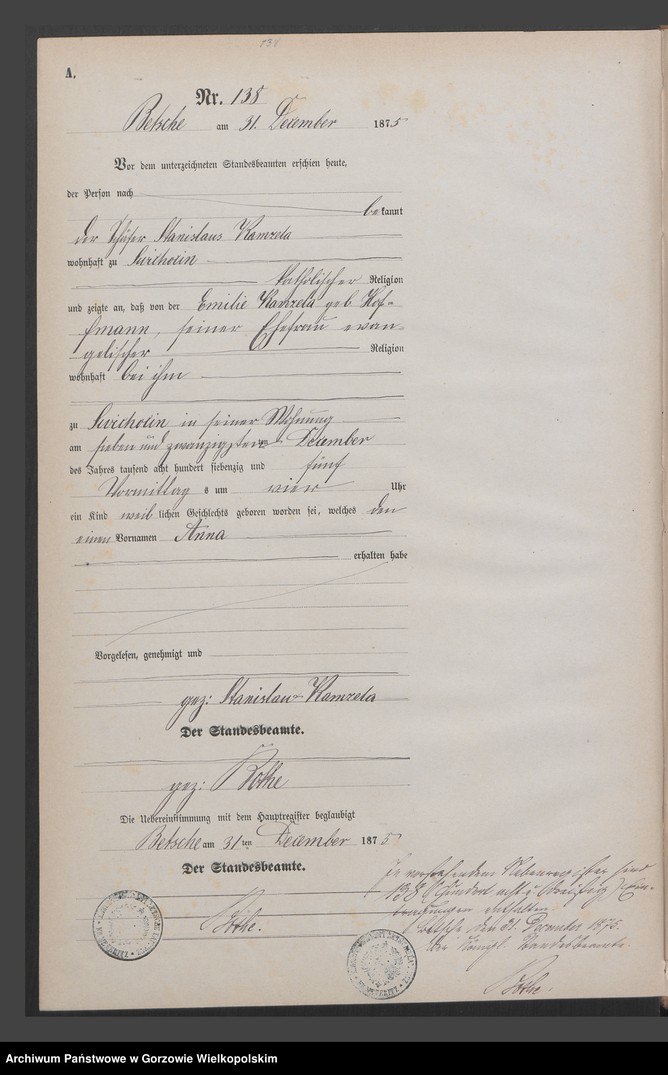 A.
Nr. 138
Betsche am 31. December 1875
Vor dem unterzeichneten Standesbeamten erschien heute,
der Person nach
bekannt
der Schäfer Stanislaus Kamzela
wohnhaft zu
katholischer Religion
und zeigte an, daß von der Emilie Kamzela geb. Hof-
fmann, seiner Ehefrau evan-
gelischer Religion
wohnhaft bei ihm
zu in seiner Wohnung
am sieben und zwanzigsten December
des Jahres tausend acht hundert siebenzig und fünf
Vormittags um vier Uhr
ein Kind weiblichen Geschlechts geboren worden sei, welches den
einen Vornamen Anna
erhalten habe
Vorgelesen, genehmigt und
gez: Stanislaus Kamzela
Der Standesbeamte.
gez: Bothe
Die Uebereinstimmung mit dem Hauptregister beglaubigt
Betsche am 31ten December 1875
Der Standesbeamte.
Bothe.
In vorstehendem Nebenregister sind
138 (Hundert acht u. dreißig) Ein-
tragungen enthalten.
Betsche den 31. December 1875.
Der Königl. Standesbeamte.
Bothe.
Archiwum Państwowe w Gorzowie Wielkopolskim